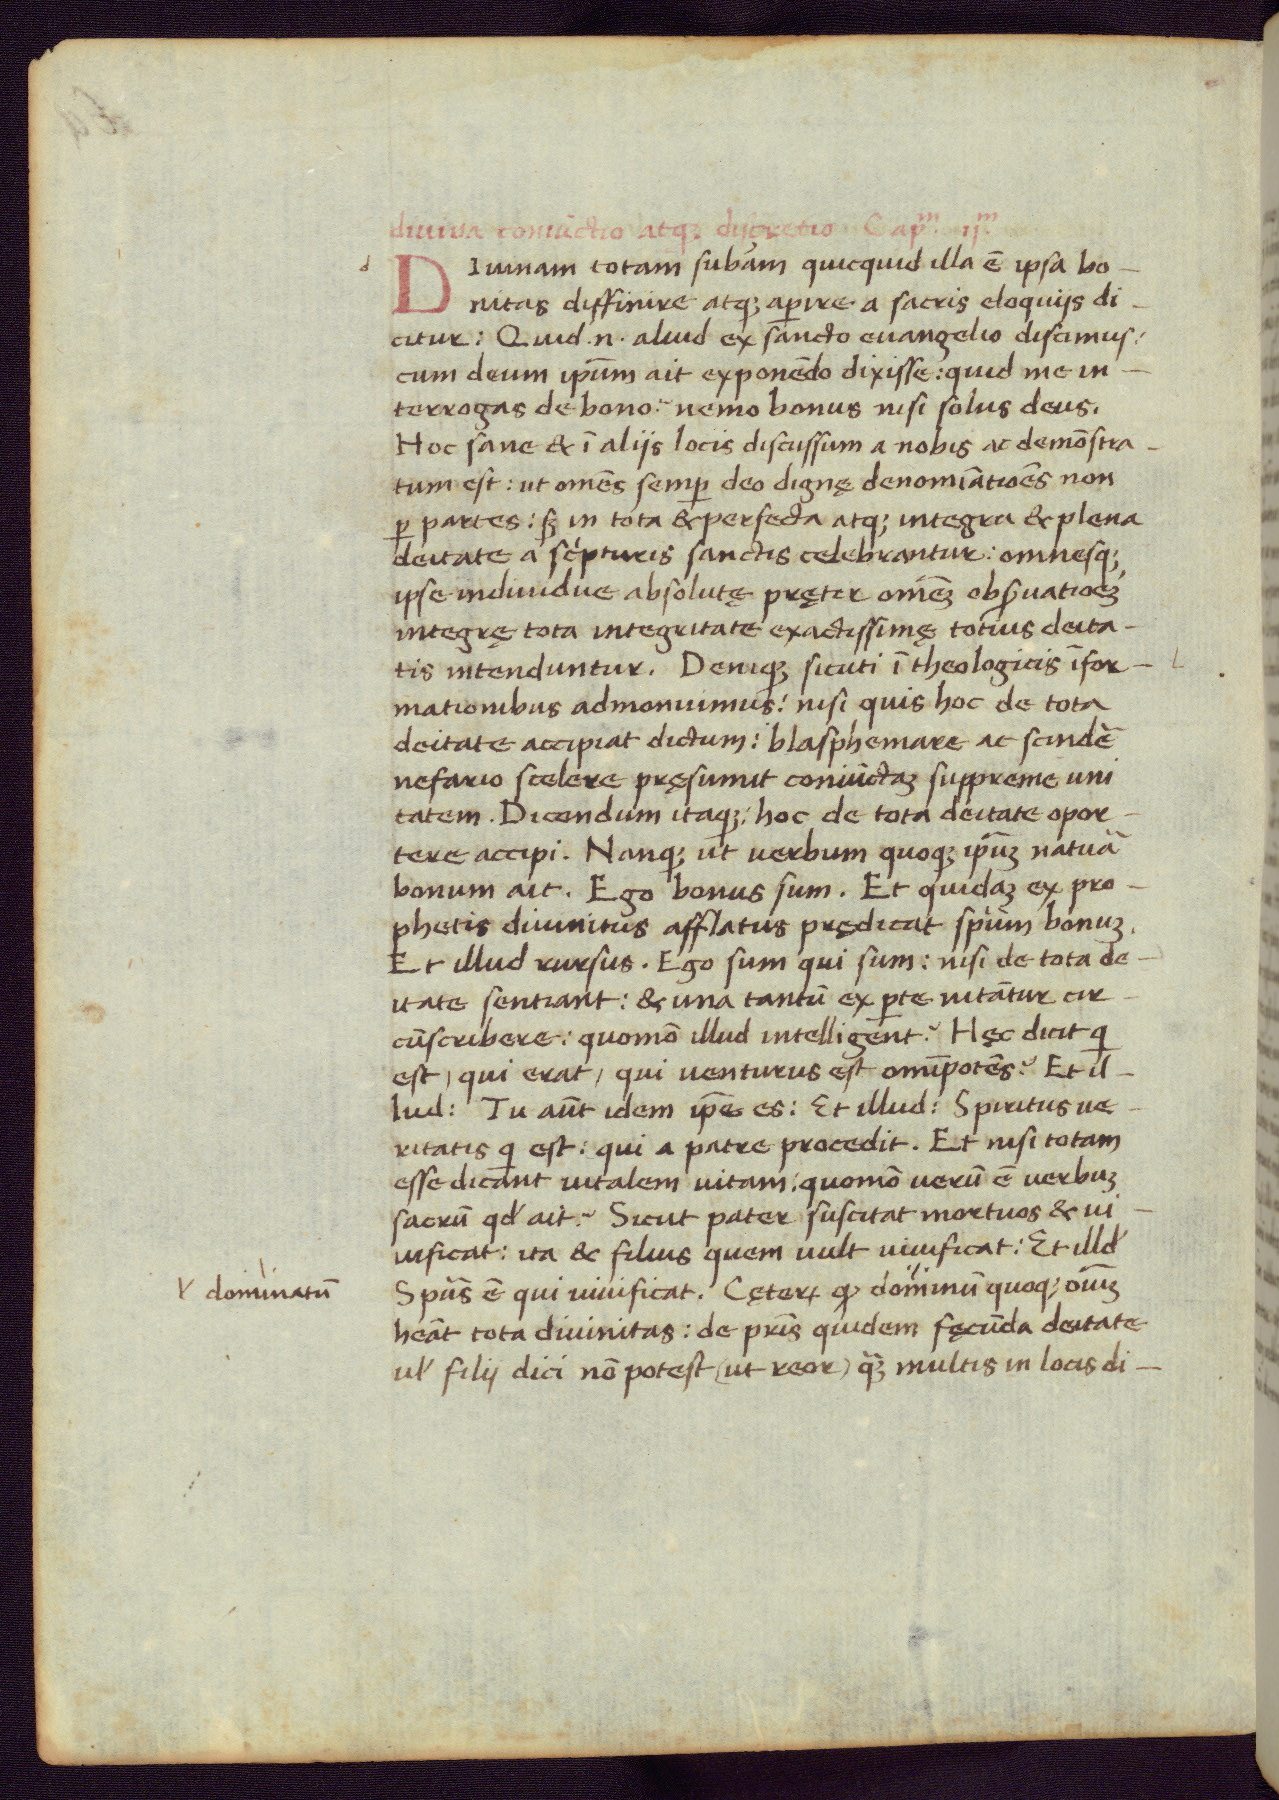 diuina coniūctio atqꝫ discretio Capᵐ. ijᵐ
d
DIuinam totam subām quicquid illa ē ipsa bo-
nitas diffinire atqꝫ aꝑire a sacris eloquijs di-
citur: Quid .n. aliud ex sancto euangelio discimus:
cum deum ipūm ait exponēdo dixisse: quid me in-
terrogas de bono? nemo bonus nisi solus deus.
Hoc sane & ī alijs locis discussum a nobis ac demōstra-
tum est: ut omēs semꝑ deo dignę denomīatioēs non
ꝑ partes: sꝫ in tota & perfecta atqꝫ integra & plena
deitate a scpturis sanctis celebrantur: omnesqꝫ
ipse indiuidue absolutę pręter omēꝫ obseruatioēꝫ
integrę tota integritate exactissimę totius deita-
tis intenduntur. Deniqꝫ sicuti ī theologicis īfor-
mationibus admonuimus: nisi quis hoc de tota
deitate accipiat dictum: blasphemare ac scindē
nefario scelere pręsumit coniūctaꝫ suppreme uni
tatem. Dicendum itaqꝫ: hoc de tota deitate opor-
tere accipi. Nanqꝫ ut uerbum quoqꝫ ipūꝫ natuā
bonum ait. Ego bonus sum. Et quidaꝫ ex pro-
phetis diuinitus afflatus prędicat spūm bonuꝫ.
Et illud rursus. Ego sum qui sum: nisi de tota de-
itate sentiant: & una tantū ex ꝑte nitātur cir-
cūscribere: quomō illud intelligent? Hęc dicit q
est, qui erat, qui uenturus est omīpotēs? Et il-
lud: Tu aūt idem ipē es: Et illud: Spiritus ue-
ritatis q est: qui a patre procedit. Et nisi totam
esse dicant uitalem uitam: quomō uerū ē uerbuꝫ
sacrū qd' ait? Sicut pater suscitat mortuos & ui-
uificat: ita & filius quem uult uiuificat: Et illd'
dominatū
Spūs ē qui uiuificat. Cęterꝝ ꝙ dominū quoqꝫ oīūꝫ
heāt tota diuinitas: de pris quidem fęcūda deitate
ul' filij dici nō potest (ut reor) qꝫ multis in locis di-